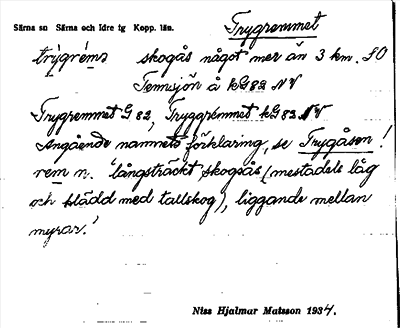 Särna sn Särna och Idre tg Kopp. län.
Trygremmet
trygréma skogås något mer än 3 km. SO
Temsjön å kG82 NV
Trygremmet G 82, Tryggrémmet kG82 NV
Angående namnets förklaring, se Trygåsen!
rem n. 'långsträckt skogsås (mestadels låg
och klädd med tallskog), liggande mellan
myrar.'
Niss Hjalmar Matsson 1934.